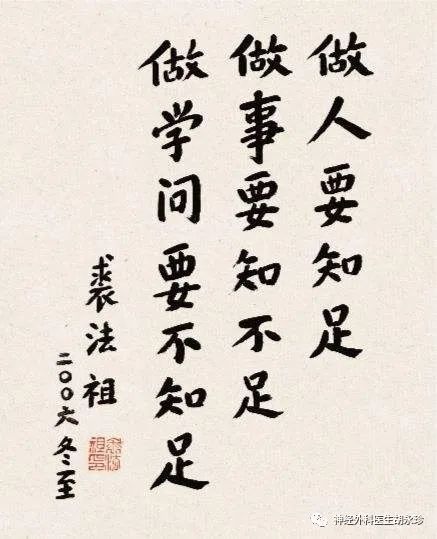 做人要知足
做事要知不足
做学问要不知足
裘法祖
二〇〇六冬至
神经外科医生胡永珍